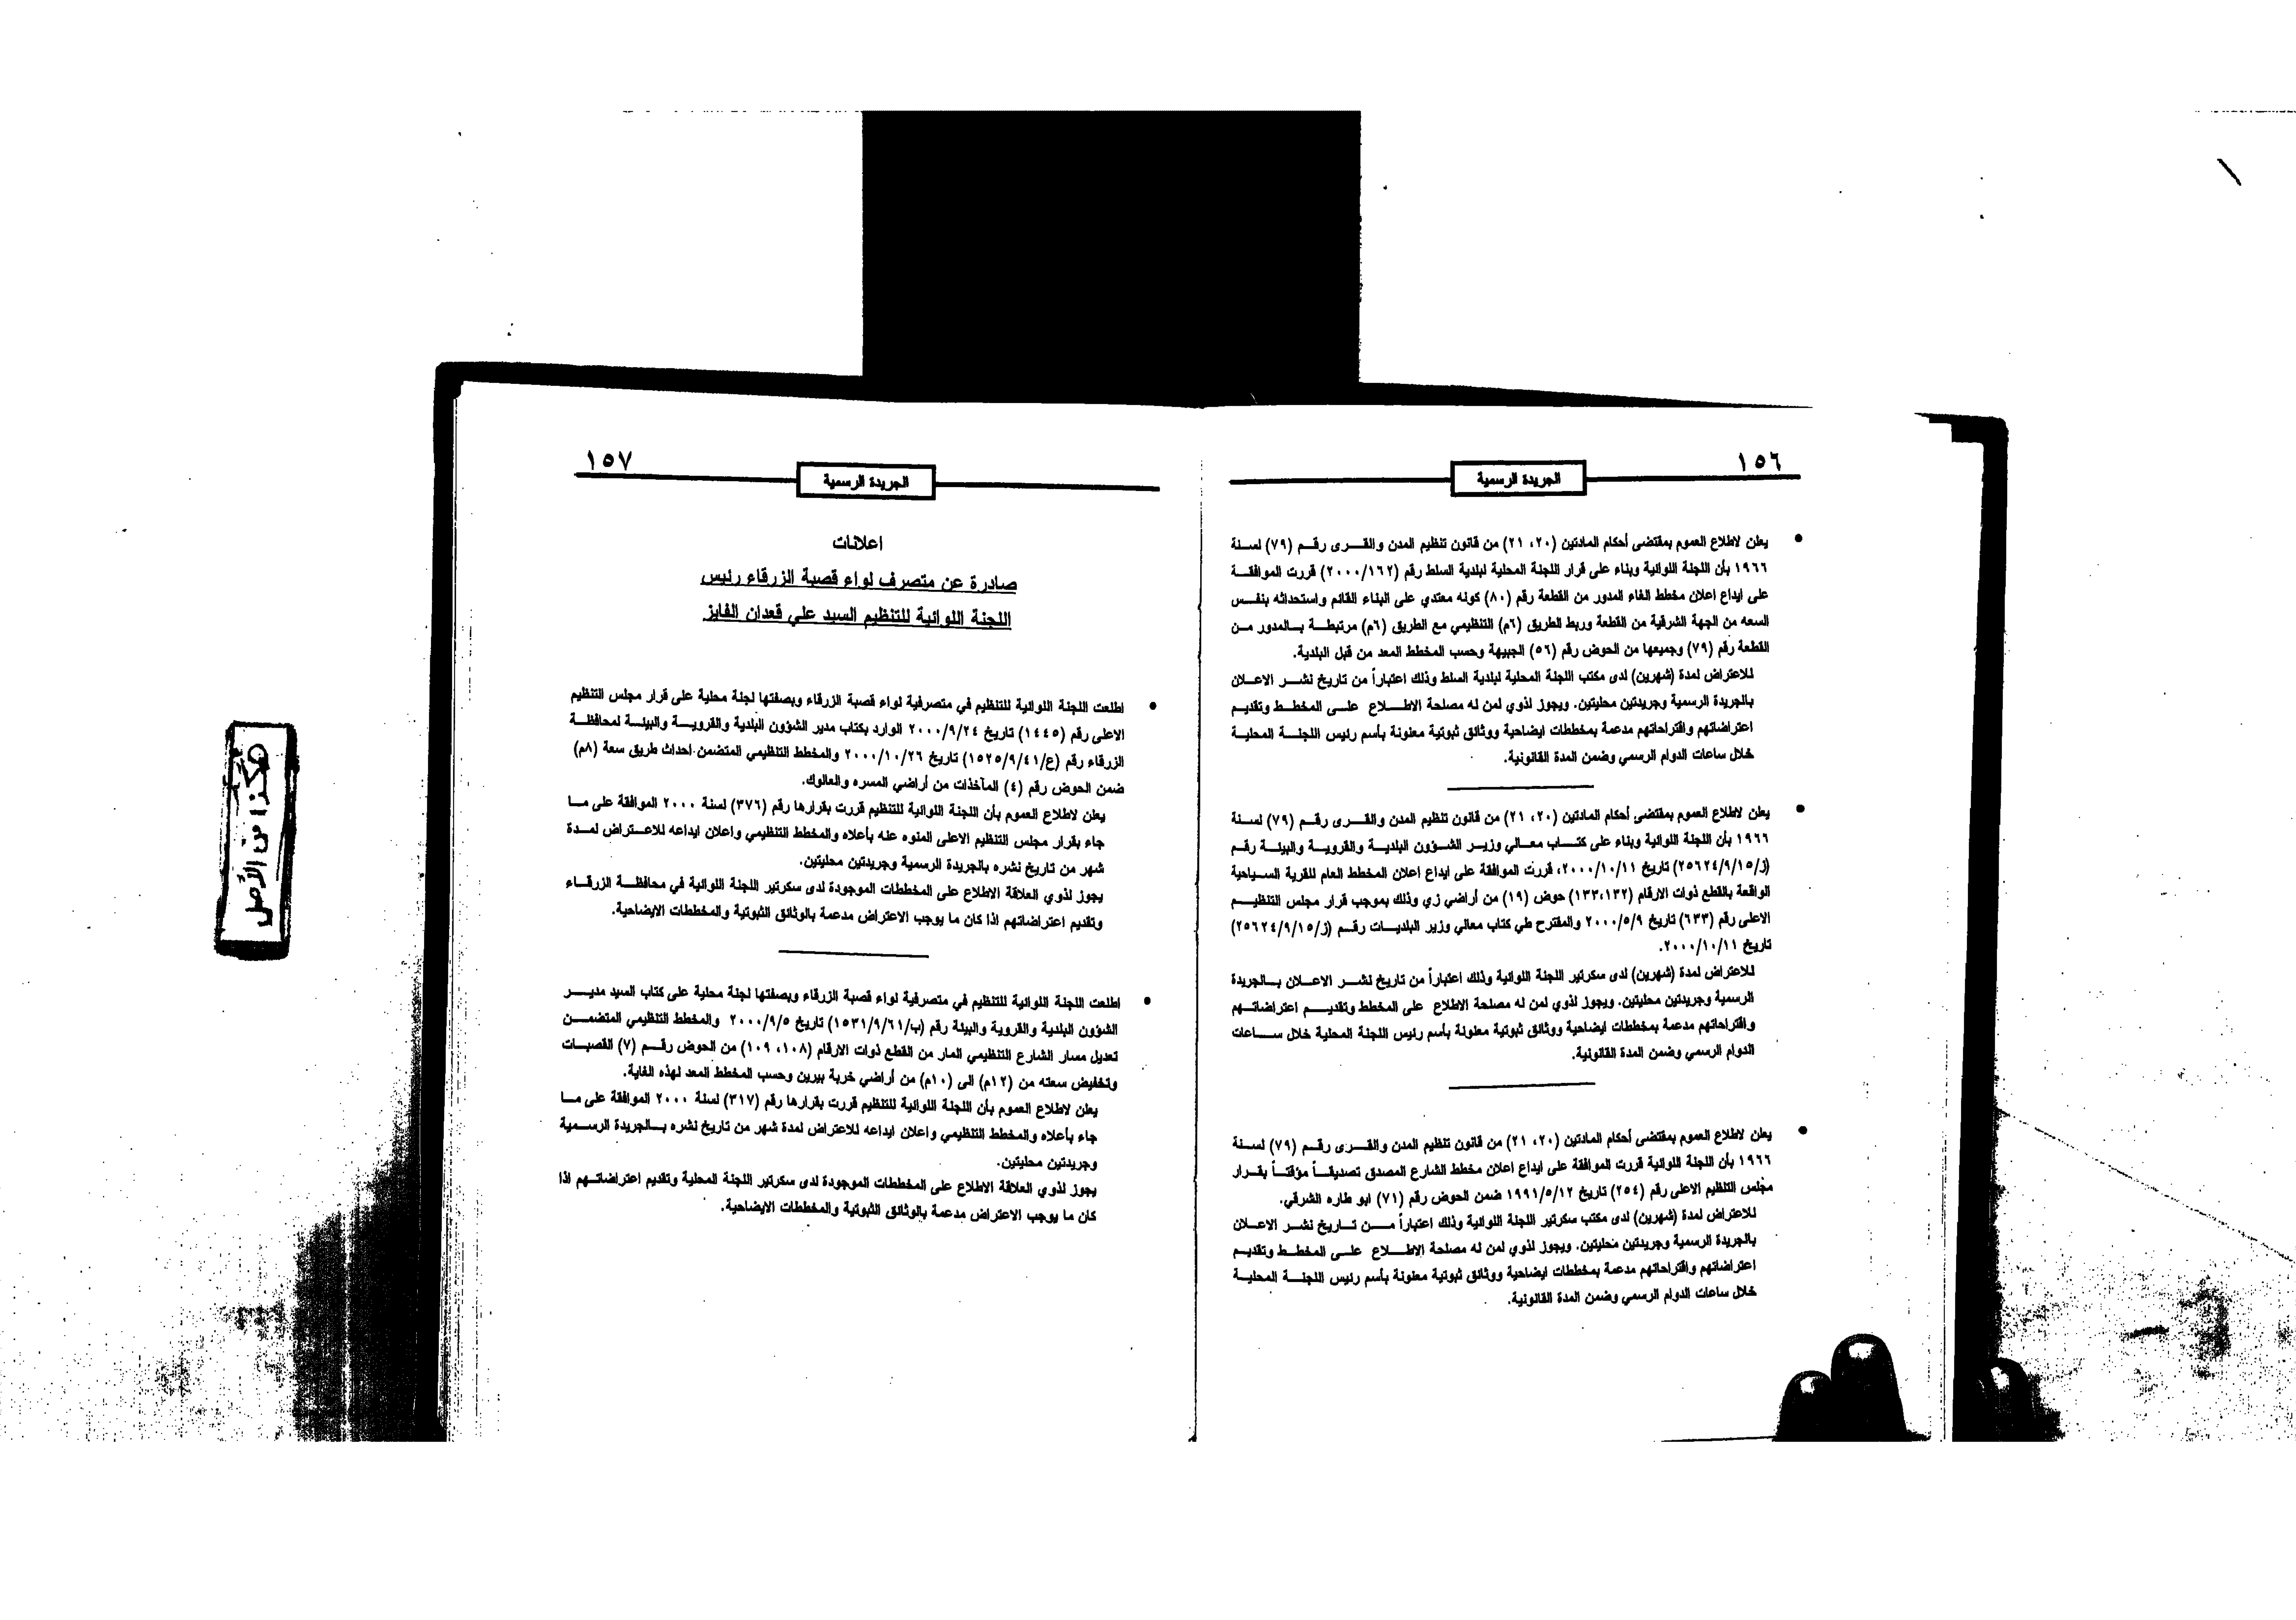 ١٥٦
الجريدة الرسمية
• يعلن لاطلاع العموم بمقتضى أحكام المادتين (٢٠، ٢١) من قانون تنظيم المدن والقرى رقم (٧٩) لسنة
١٩٦٦ بأن اللجنة اللوائية وبناء على قرار اللجنة المحلية لبلدية السلط رقم (٢٠٠٠/١٦٢) قررت الموافقة
على ايداع اعلان مخطط الغاء المدور من القطعة رقم (٨٠) كونه معتدي على البناء القائم واستحداثه بنفس
السعه من الجهة الشرقية من القطعة وربط الطريق (٦م) التنظيمي مع الطريق (٦م) مرتبطة بالمدور من
القطعة رقم (٧٩) وجميعها من الحوض رقم (٥٦) الجبيهة وحسب المخطط المعد من قبل البلدية.
للاعتراض لمدة (شهرين) لدى مكتب اللجنة المحلية لبلدية السلط وذلك اعتباراً من تاريخ نشر الاعلان
بالجريدة الرسمية وجريدتين محليتين. ويجوز لذوي لمن له مصلحة الاطلاع على المخطط وتقديم
اعتراضاتهم واقتراحاتهم مدعمة بمخططات ايضاحية ووثائق ثبوتية معنونة بأسم رئيس اللجنة المحلية
خلال ساعات الدوام الرسمي وضمن المدة القانونية.
• يعلن لاطلاع العموم بمقتضى أحكام المادتين (٢٠، ٢١) من قانون تنظيم المدن والقرى رقم (٧٩) لسنة
١٩٦٦ بأن اللجنة اللوائية وبناء على كتاب معالي وزير الشؤون البلدية والقروية والبيئة رقم
(ز/٢٥٦٢٤/٩/١٥) تاريخ ٢٠٠٠/١٠/١١، قررت الموافقة على ايداع اعلان المخطط العام للقرية السياحية
الواقعة بالقطع ذوات الارقام (١٣٣،١٣٢) حوض (١٩) من أراضي زي وذلك بموجب قرار مجلس التنظيم
الاعلى رقم (٦٣٣) تاريخ ٢٠٠٠/٥/٩ والمقترح طي كتاب معالي وزير البلديات رقم (ز/٢٥٦٢٤/٩/١٥)
تاريخ ٢٠٠٠/١٠/١١.
للاعتراض لمدة (شهرين) لدى سكرتير اللجنة اللوائية وذلك اعتباراً من تاريخ نشر الاعلان بالجريدة
الرسمية وجريدتين محليتين. ويجوز لذوي لمن له مصلحة الاطلاع على المخطط وتقديم اعتراضاتهم
واقتراحاتهم مدعمة بمخططات ايضاحية ووثائق ثبوتية معنونة بأسم رئيس اللجنة المحلية خلال ساعات
الدوام الرسمي وضمن المدة القانونية.
• يعلن لاطلاع العموم بمقتضى أحكام المادتين (٢٠، ٢١) من قانون تنظيم المدن والقرى رقم (٧٩) لسنة
١٩٦٦ بأن اللجنة اللوائية قررت الموافقة على ايداع اعلان مخطط الشارع المصدق تصديقاً مؤقتاً بقرار
مجلس التنظيم الاعلى رقم (٢٥٤) تاريخ ١٩٩١/٥/١٢ ضمن الحوض رقم (٧١) ابو طاره الشرقي.
للاعتراض لمدة (شهرين) لدى مكتب سكرتير اللجنة اللوائية وذلك اعتباراً من تاريخ نشر الاعلان
بالجريدة الرسمية وجريدتين محليتين. ويجوز لذوي لمن له مصلحة الاطلاع على المخطط وتقديم
اعتراضاتهم واقتراحاتهم مدعمة بمخططات ايضاحية ووثائق ثبوتية معنونة بأسم رئيس اللجنة المحلية
خلال ساعات الدوام الرسمي وضمن المدة القانونية.
١٥٧
الجريدة الرسمية
اعلانات
صادرة عن متصرف لواء قصبة الزرقاء رئيس
اللجنة اللوائية للتنظيم السيد علي قعدان الفايز
• اطلعت اللجنة اللوائية للتنظيم في متصرفية لواء قصبة الزرقاء وبصفتها لجنة محلية على قرار مجلس التنظيم
الاعلى رقم (١٤٤٥) تاريخ ٢٠٠٠/٩/٢٤ الوارد بكتاب مدير الشؤون البلدية والقروية والبيئة لمحافظة
الزرقاء رقم (ع/١٥٢٥/٩/٤١) تاريخ ٢٠٠٠/١٠/٢٦ والمخطط التنظيمي المتضمن احداث طريق سعة (٨م)
ضمن الحوض رقم (٤) المآخذات من أراضي المسره والعالوك.
يعلن لاطلاع العموم بأن اللجنة اللوائية للتنظيم قررت بقرارها رقم (٣٧٦) لسنة ٢٠٠٠ الموافقة على ما
جاء بقرار مجلس التنظيم الاعلى المنوه عنه بأعلاه والمخطط التنظيمي واعلان ايداعه للاعتراض لمدة
شهر من تاريخ نشره بالجريدة الرسمية وجريدتين محليتين.
يجوز لذوي العلاقة الاطلاع على المخططات الموجودة لدى سكرتير اللجنة اللوائية في محافظة الزرقاء
وتقديم اعتراضاتهم اذا كان ما يوجب الاعتراض مدعمة بالوثائق الثبوتية والمخططات الايضاحية.
• اطلعت اللجنة اللوائية للتنظيم في متصرفية لواء قصبة الزرقاء وبصفتها لجنة محلية على كتاب السيد مدير
الشؤون البلدية والقروية والبيئة رقم (ب/١٥٣١/٩/٦١) تاريخ ٢٠٠٠/٩/٥ والمخطط التنظيمي المتضمن
تعديل مسار الشارع التنظيمي المار من القطع ذوات الارقام (١٠٨، ١٠٩) من الحوض رقم (٧) القصبات
وتخفيض سعته من (١٢م) الى (١٠م) من أراضي خربة بيرين وحسب المخطط المعد لهذه الغاية.
يعلن لاطلاع العموم بأن اللجنة اللوائية للتنظيم قررت بقرارها رقم (٣١٧) لسنة ٢٠٠٠ الموافقة على ما
جاء بأعلاه والمخطط التنظيمي واعلان ايداعه للاعتراض لمدة شهر من تاريخ نشره بالجريدة الرسمية
وجريدتين محليتين.
يجوز لذوي العلاقة الاطلاع على المخططات الموجودة لدى سكرتير اللجنة المحلية وتقديم اعتراضاتهم اذا
كان ما يوجب الاعتراض مدعمة بالوثائق الثبوتية والمخططات الايضاحية.
هكذا من الأصل